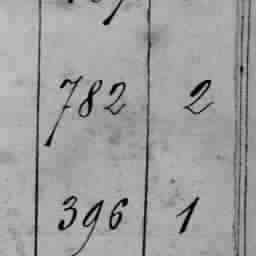 782 2
396 1